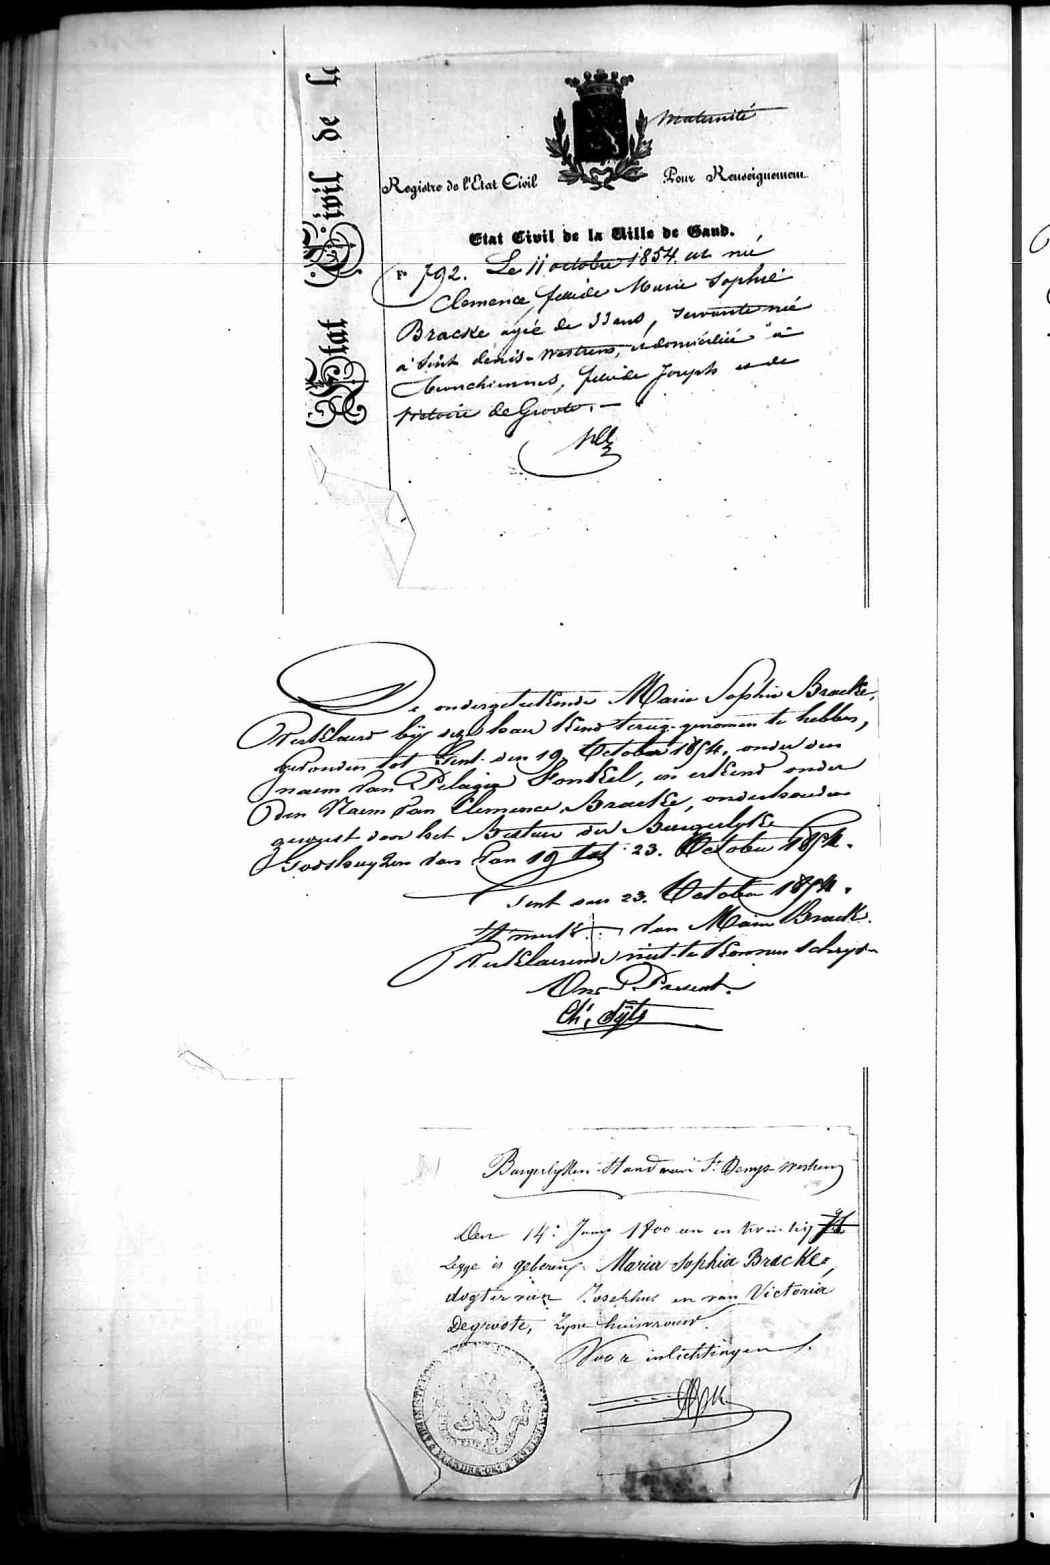 Etat Civil de la
Maternité
Registre de l'Etat Civil Pour Renseignemens
Etat Civil de la Ville de Gand.
N° 792. Le 11 octobre 1854. est née
Clemence, fille de Marie Sophie
Bracke agée de 33 ans, servante née
à Sint denis-Westrem, et domiciliée à
Tronchiennes, fille de Joseph et de
Victoire de Groote. —
De ondergeteekende Maria Sophia Bracke,
Verklaerd bij deze haer kind terug genomen te hebben,
gevonden tot Gent den 19 October 1854, onder den
naem van Pelagia Fonkel, en erkend onder
den Naem van Clemence Bracke, onderhouden
geweest door het Bestuer der Burgerlyke
Godshuyzen dan van 19 tot 23. October 1854.
Gent den 23. October 1854.
Het merk + van Maria Bracke.
Verklaerende niet te konnen schryven
Ons Present.
Burgerlyken Stand van St Denys-Westrem
Den 14e Juny 1800 een en twintig 21
Zegge is geboren Maria Sophia Bracke,
dogter van Josephus en van Victoria
Degroote, zyne huisvrouw.
Voor inlichtingen